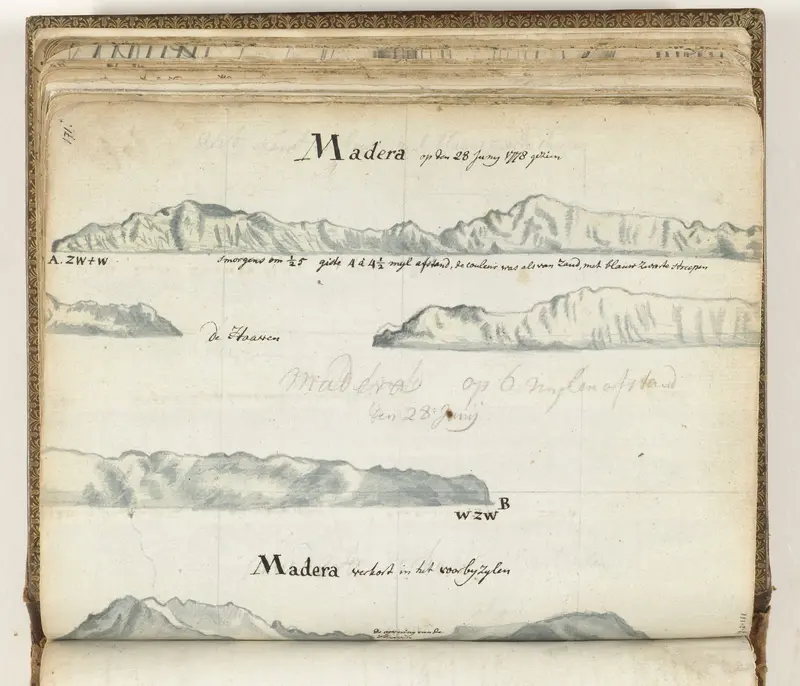 171.
Madera op den 28 Junij 1778 gezien
A. ZW+W
Smorgens om ½5 giste 4 à 4½ myl afstand, de couleur was als van Zand, met blauw Zwarte streepen
de Haaven
Madera op 6 mylen afstand
den 28 Junij
B
WZW
Madera verkort in het voorby Zylen
de opening van de